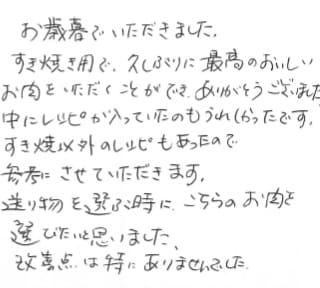 お歳暮でいただきました。
すき焼き用で、久しぶりに最高のおいしい
お肉をいただくことができ、ありがとうございました
中にレシピが入っていたのもうれしかったです。
すき焼以外のレシピもあったので
参考にさせていただきます。
送り物を選ぶ時に、こちらのお肉を
選びたいと思いました、
改善点は特にありませんでした。